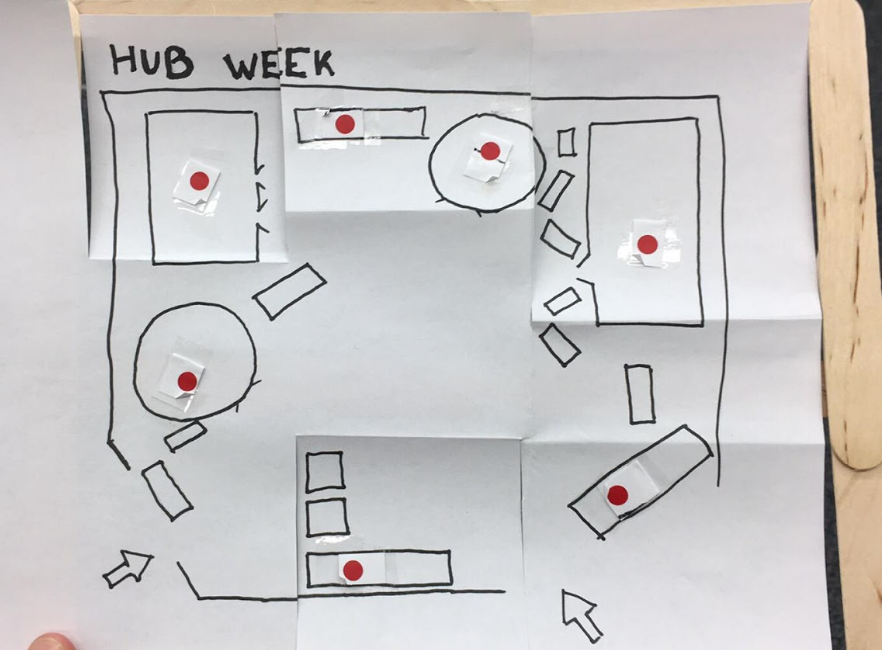 HUB WEEK